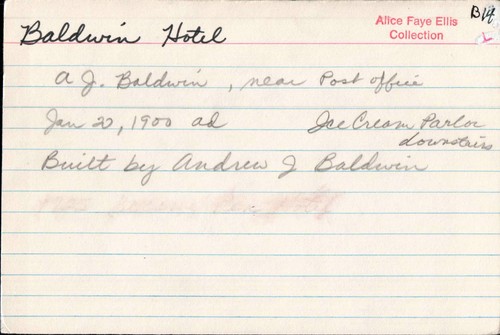 B14
Alice Faye Ellis
Collection
Baldwin Hotel
A J. Baldwin, near Post office
Jan 20, 1900 ad Ice Cream Parlor
downstairs
Built by Andrew J Baldwin